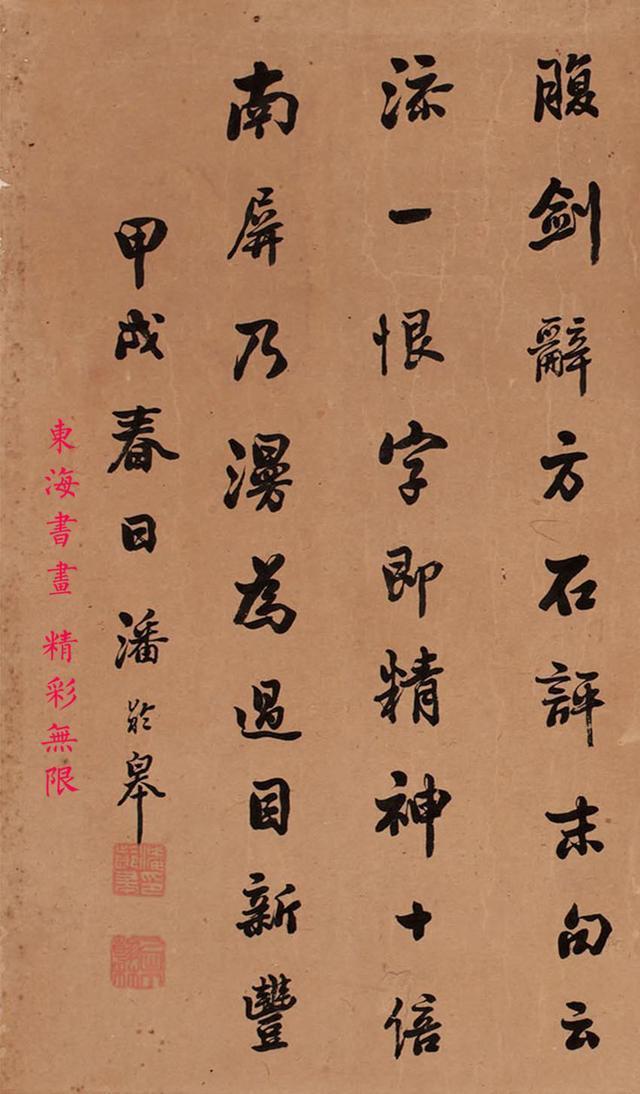 腹剑辭方石評末句云
添一恨字即精神十倍
南屏乃漫為過目新豐
甲戌春日潘齡皋
東海書畫 精彩無限